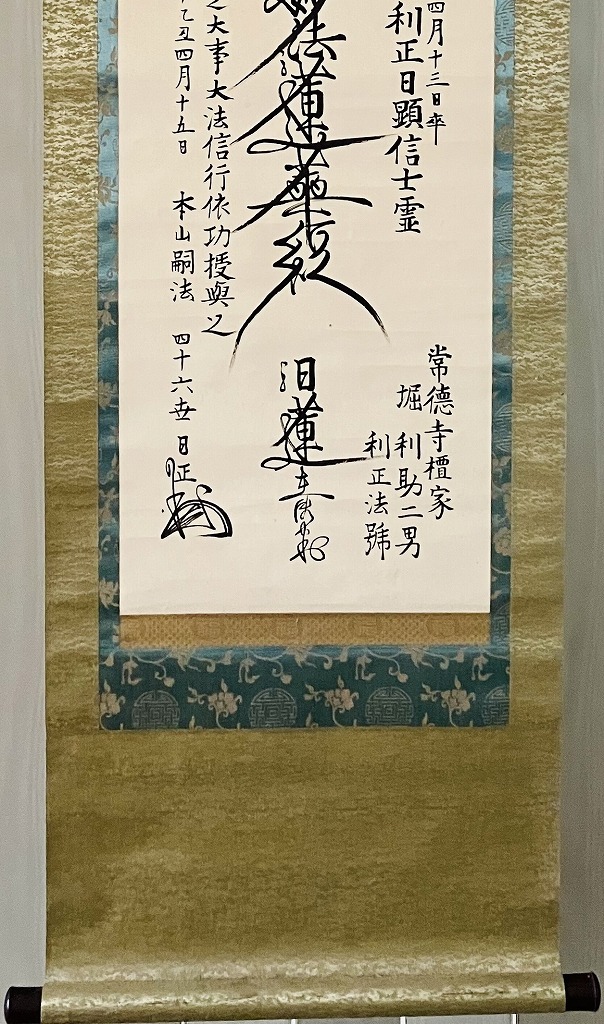 四月十三日卒
利正日顕信士霊
常德寺檀家
堀 利助二男
利正法號
妙法蓮華経
日蓮
之大事大法信行依功授與之
乙丑四月十五日 本山嗣法 四十六世 日